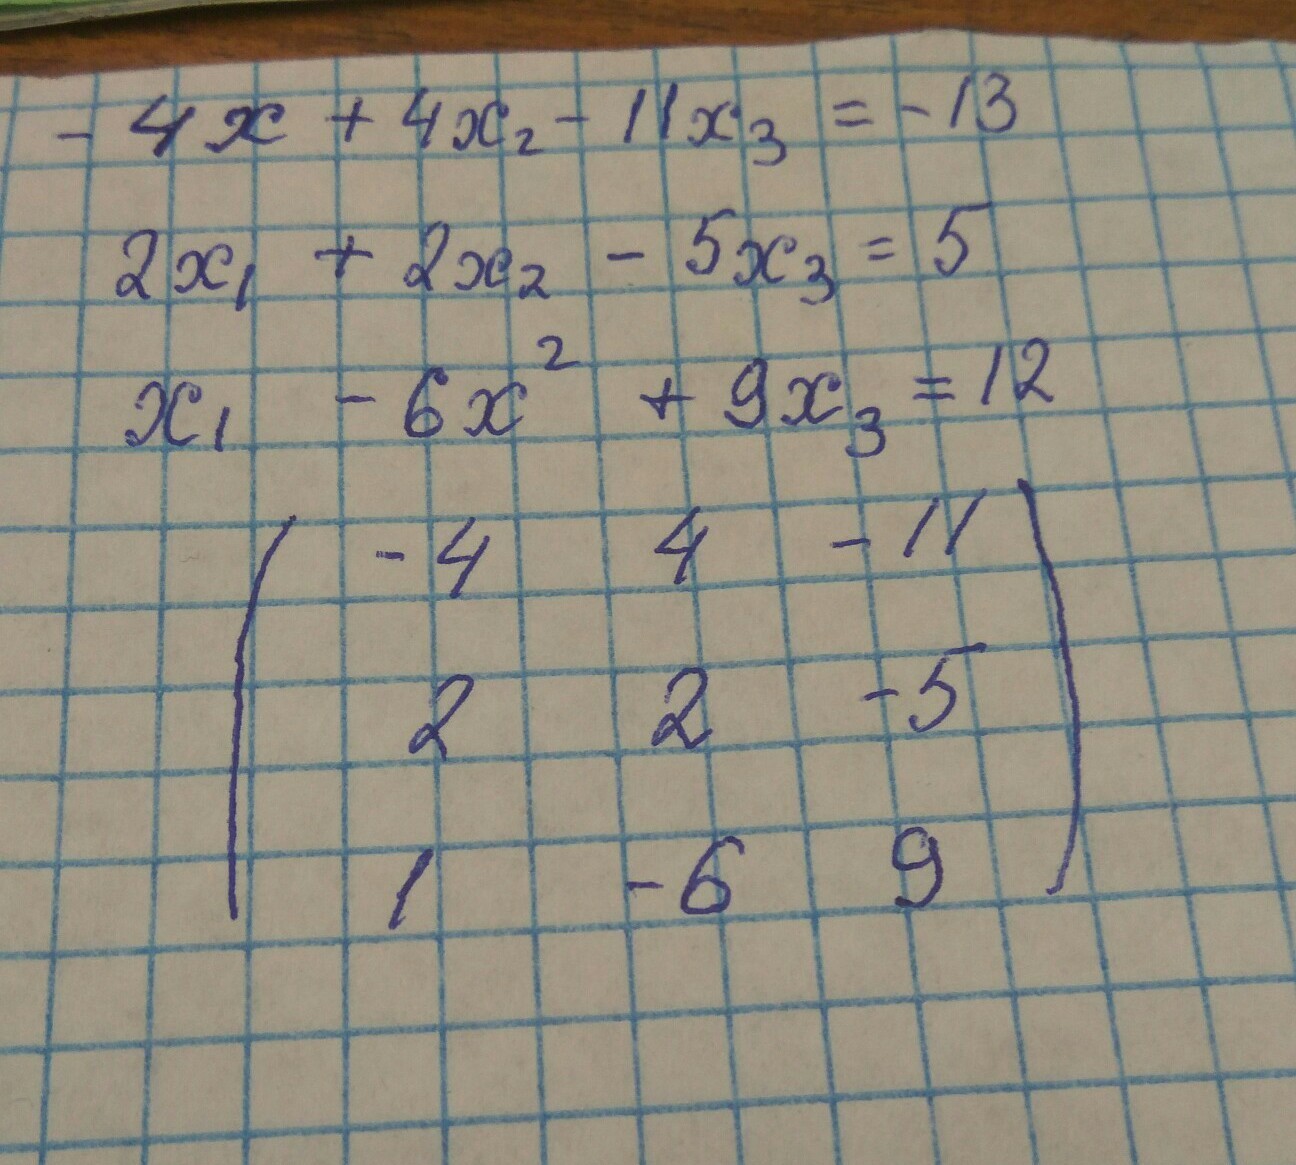 - 4x + 4x₂ - 11x₃ = -13
2x₁ + 2x₂ - 5x₃ = 5
x₁ - 6x² + 9x₃ = 12
-4 4 -11
2 2 -5
1 -6 9